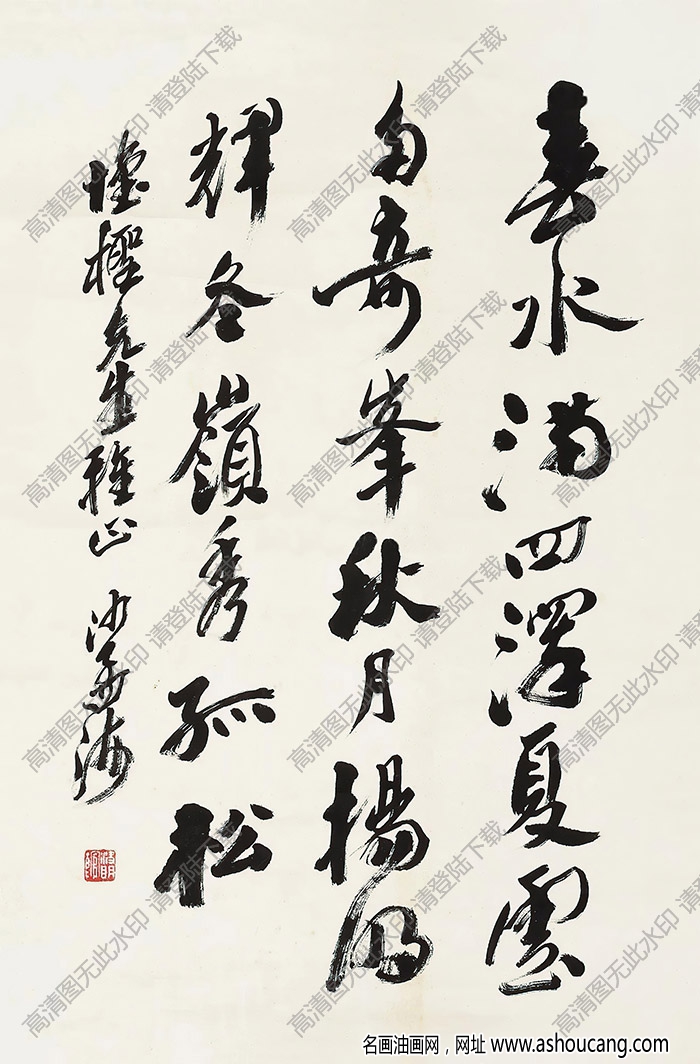 春水滿四澤夏雲
多奇峯秋月揚明
輝冬嶺秀孤松
先生雅正 沙孟海
高清图无此水印 请登陆下载
名画油画网，网址 www.ashoucang.com